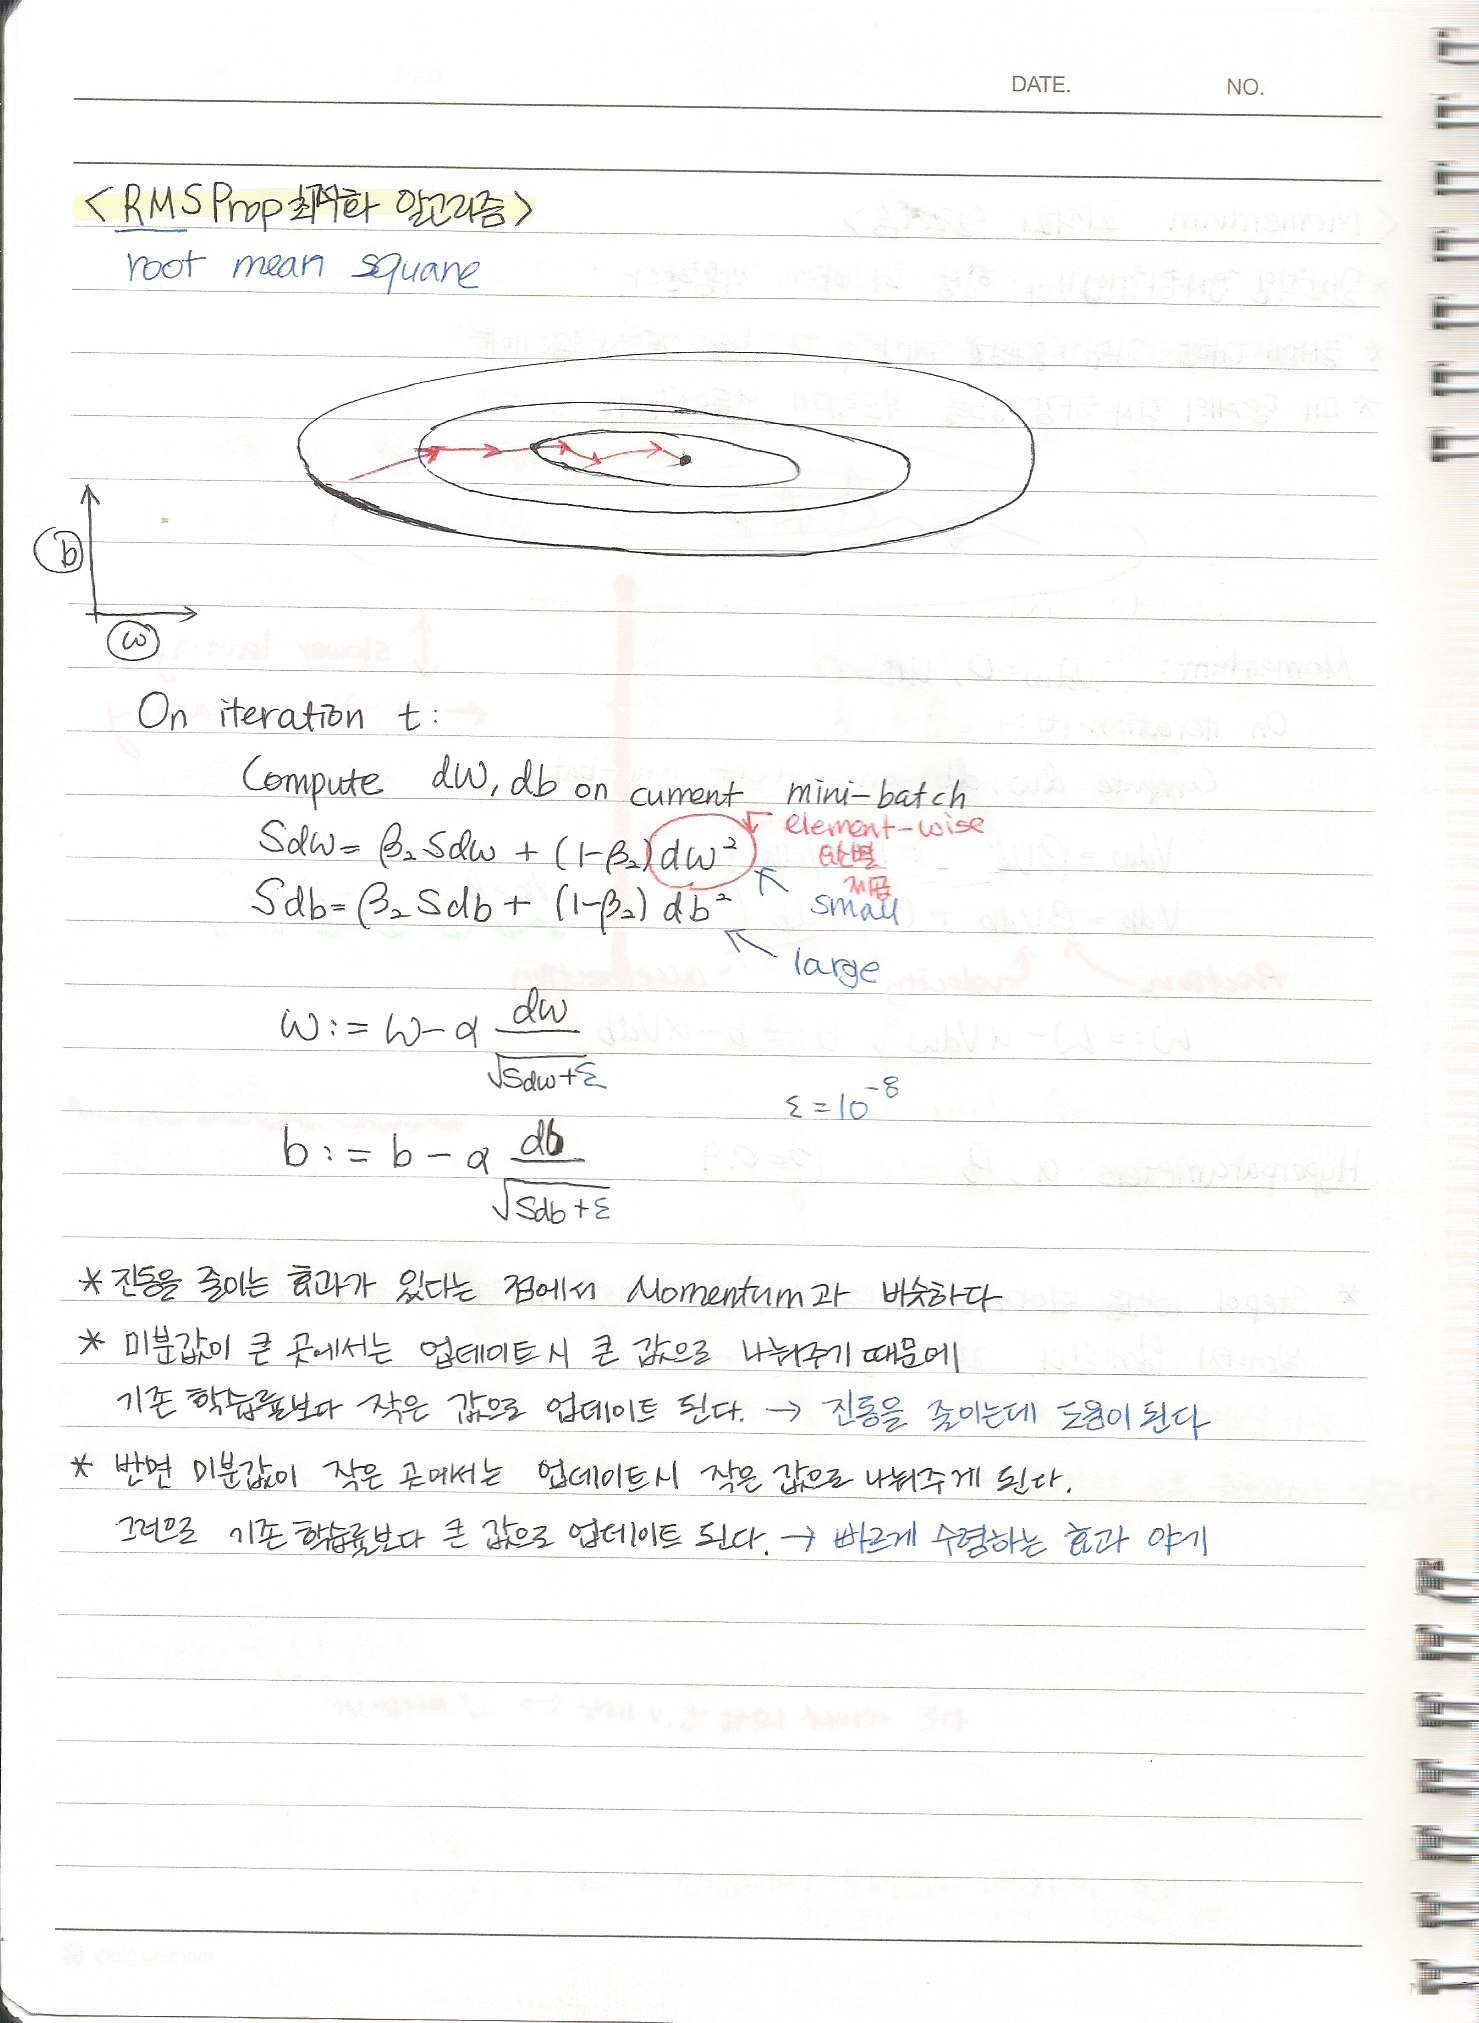 DATE. NO.
<RMSProp 최적화 알고리즘>
root mean square
b
w
On iteration t:
Compute dw, db on current mini-batch
Sdw = β₂Sdw + (1-β₂)dw² element-wise
제곱
Sdb = β₂Sdb + (1-β₂)db² small
large
w := w - α dw/√Sdw+ε
ε = 10⁻⁸
b := b - α db/√Sdb+ε
* 진동을 줄이는 효과가 있다는 점에서 Momentum과 비슷하다
* 미분값이 큰 곳에서는 업데이트시 큰 값으로 나눠주기 때문에
기존 학습률보다 작은 값으로 업데이트 된다. → 진동을 줄이는데 도움이 된다
* 반면 미분값이 작은 곳에서는 업데이트시 작은 값으로 나눠주게 된다.
그러므로 기존 학습률보다 큰 값으로 업데이트 된다. → 빠르게 수렴하는 효과 야기